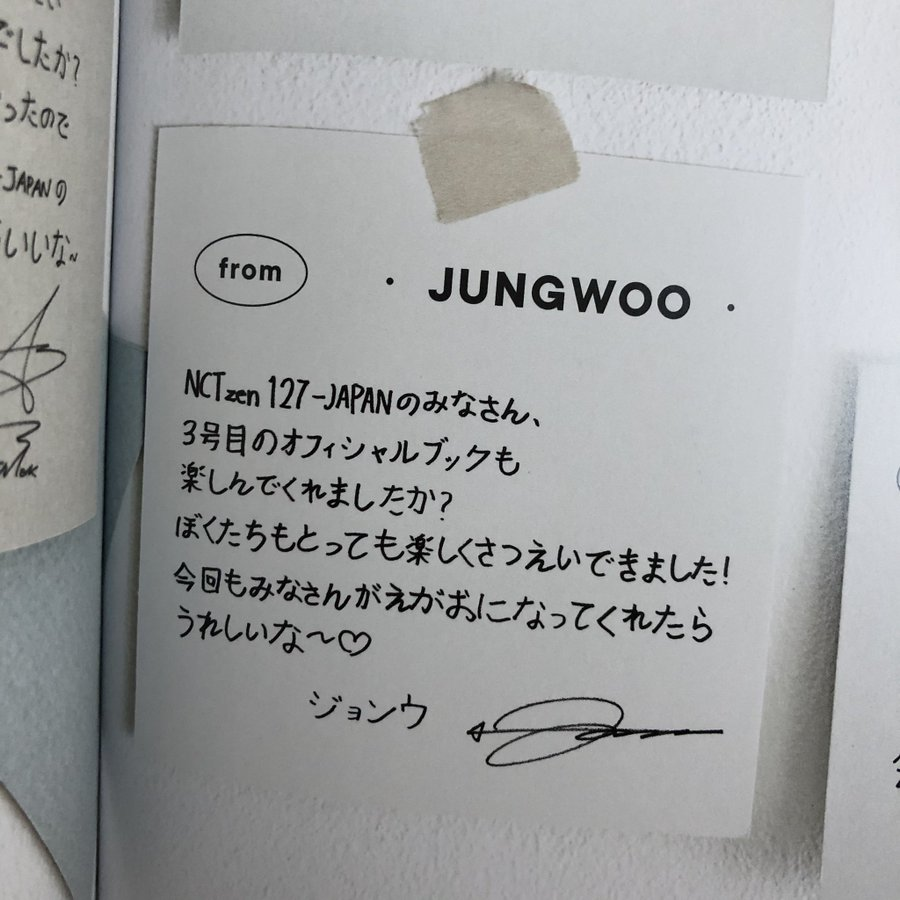 でしたか?
ったので
-JAPANの
いいな~
from
· JUNGWOO ·
NCTzen 127-JAPANのみなさん、
3号目のオフィシャルブックも
楽しんでくれましたか?
ぼくたちもとっても楽しくさつえいできました!
今回もみなさんがえがおになってくれたら
うれしいな〜♡
ジョンウ